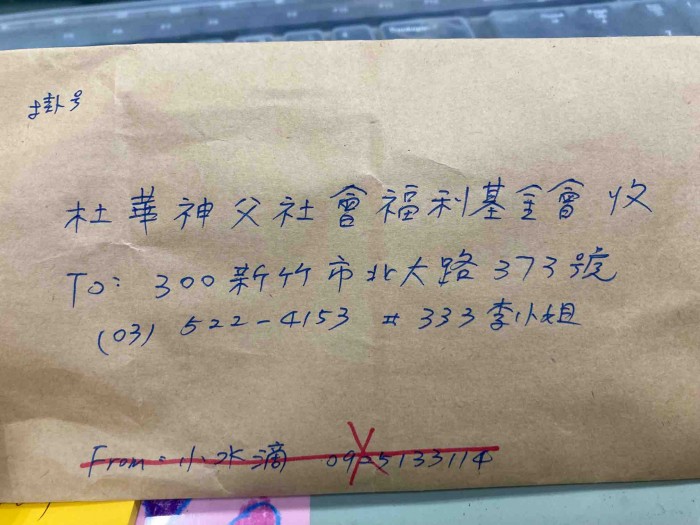 掛号
杜華神父社會福利基金會 收
To: 300 新竹市北大路373號
(03) 522-4153 # 333 李小姐
From: 小水滴